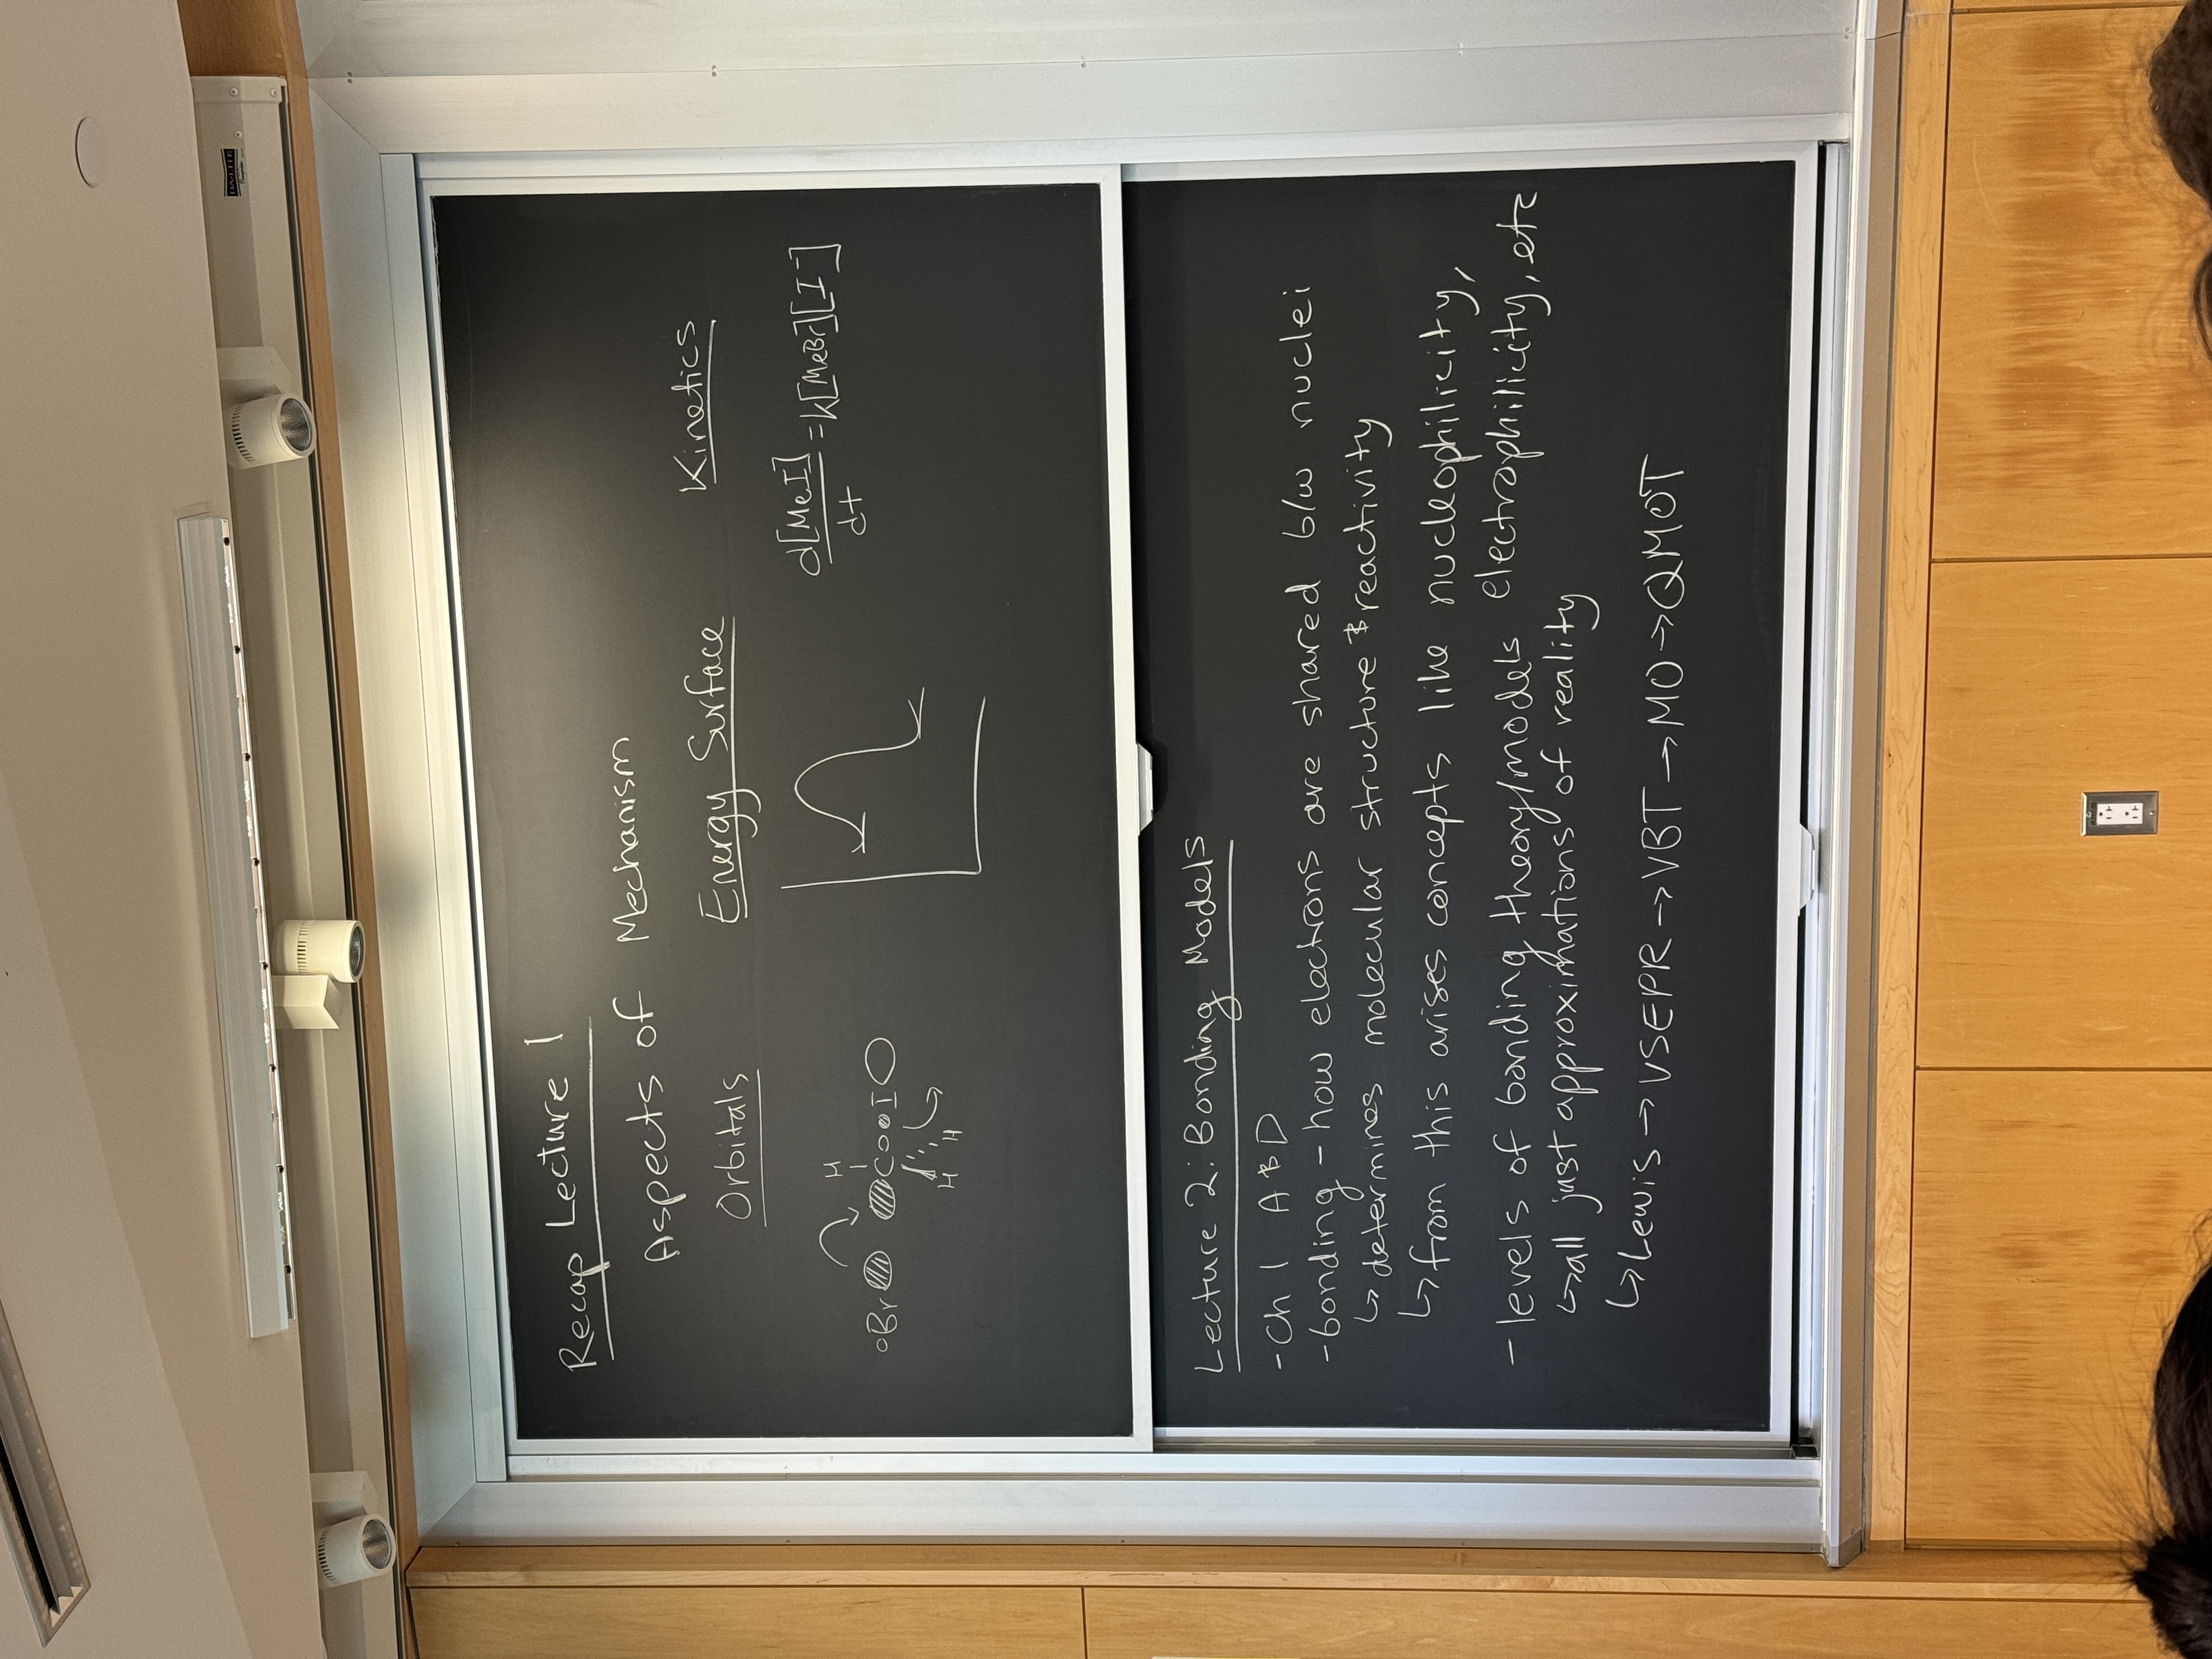 DA-LITE
Recap Lecture 1
Aspects of Mechanism
Orbitals
Energy Surface
Kinetics
H
Br C I
H H
d[MeI]
dt
=k[MeBr][I⁻]
Lecture 2: Bonding Models
-Ch 1 A & D
-bonding - how electrons are shared b/w nuclei
↳ determines molecular structure & reactivity
↳ from this arises concepts like nucleophilicity,
electrophilicity, etc
- levels of bonding theory/models
↳ all just approximations of reality
↳ Lewis → VSEPR → VBT → MO → QMOT